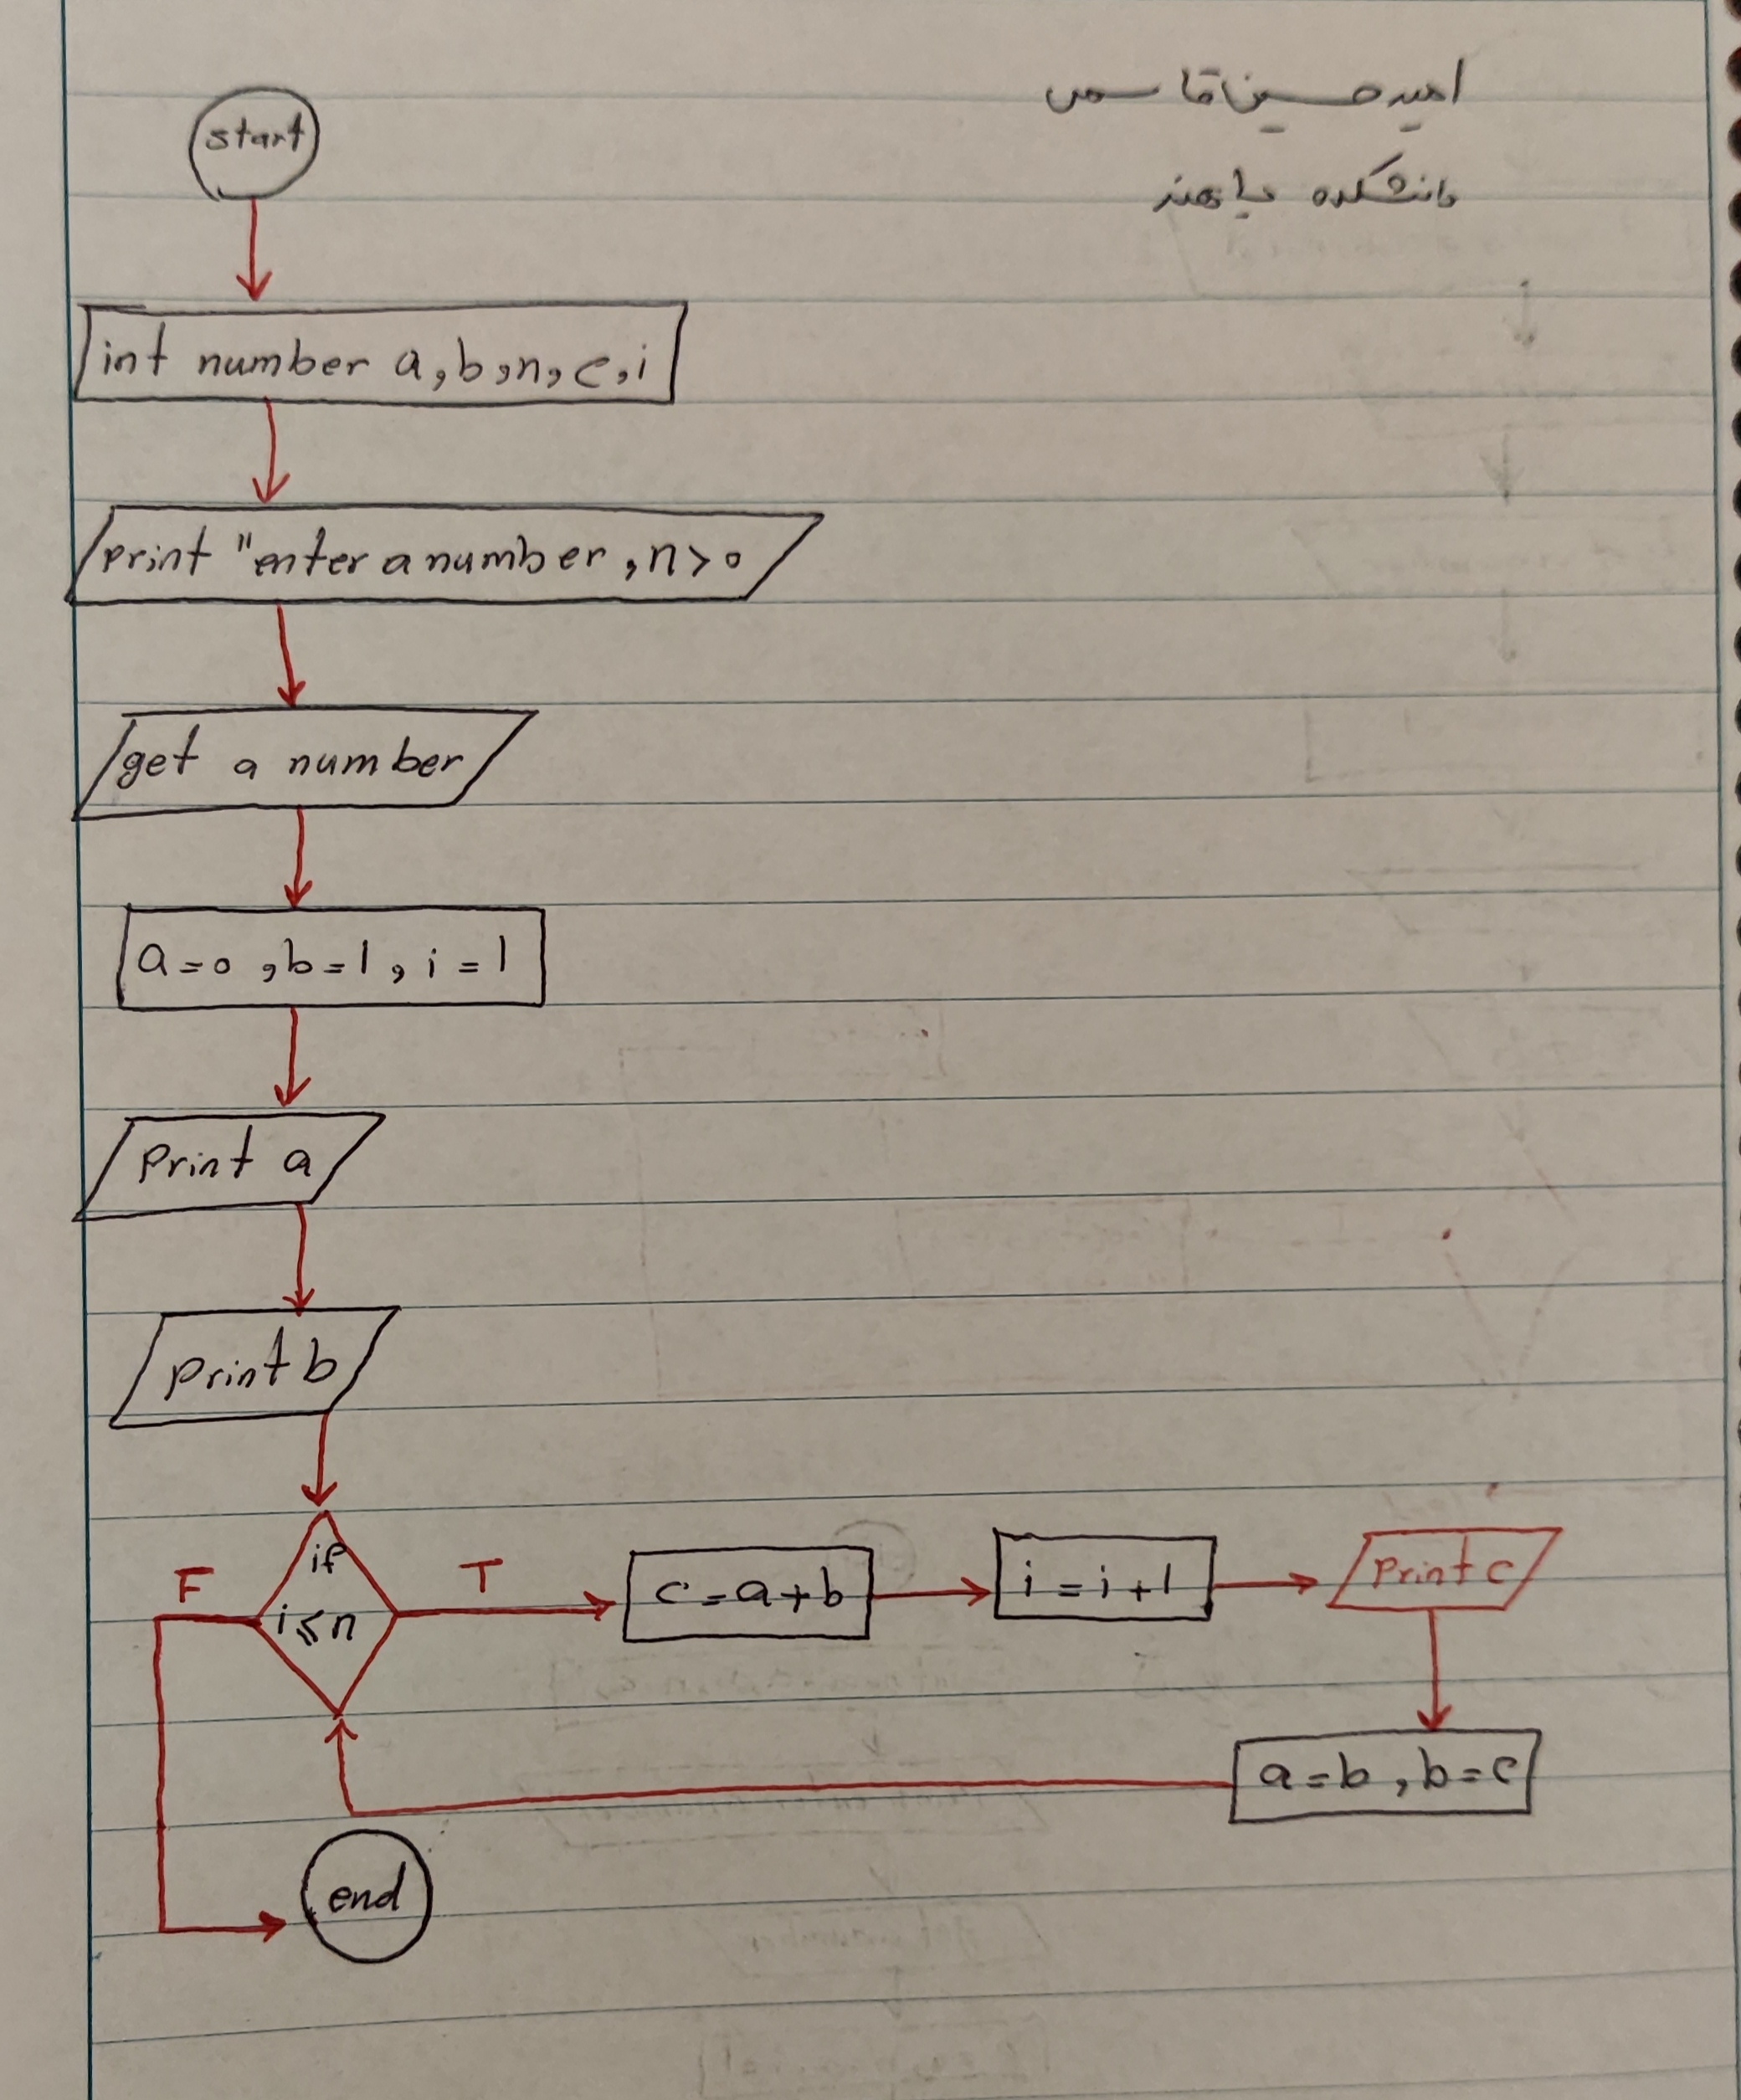 امیرحسین قاسمی
دانشکده باهنر
start
int number a,b,n,c,i
print "enter a number, n>0
get a number
a=0, b=1, i=1
Print a
print b
if
i≤n
F
T
c=a+b
i=i+1
Print c
a=b, b=c
end